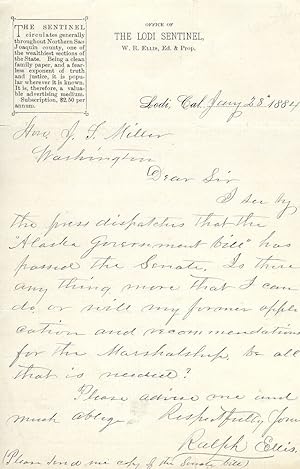 THE SENTINEL
circulates generally
throughout Northern San
Joaquin county, one of
the wealthiest sections of
the State. Being a clean
family paper, and a fear-
less exponent of truth
and justice, it is popu-
lar wherever it is known.
It is, therefore, a valua-
ble advertising medium.
Subscription, $2.50 per
annum.
OFFICE OF
THE LODI SENTINEL,
W. R. ELLIS, Ed. & Prop.
Lodi, Cal. Jany 28" 1884
Hon. J. F. Miller
Washington
Dear Sir
I see by
the press dispatches that the
"Alaska Government bill" has
passed the Senate. Is there
any thing more that I can
do, or will my former appli
cation and recommendations
for the Marshalship, be all
that is needed?
Please advise me and
much oblige Respectfully Yours
Ralph Ellis
(Please send me copy of the Senate bill)